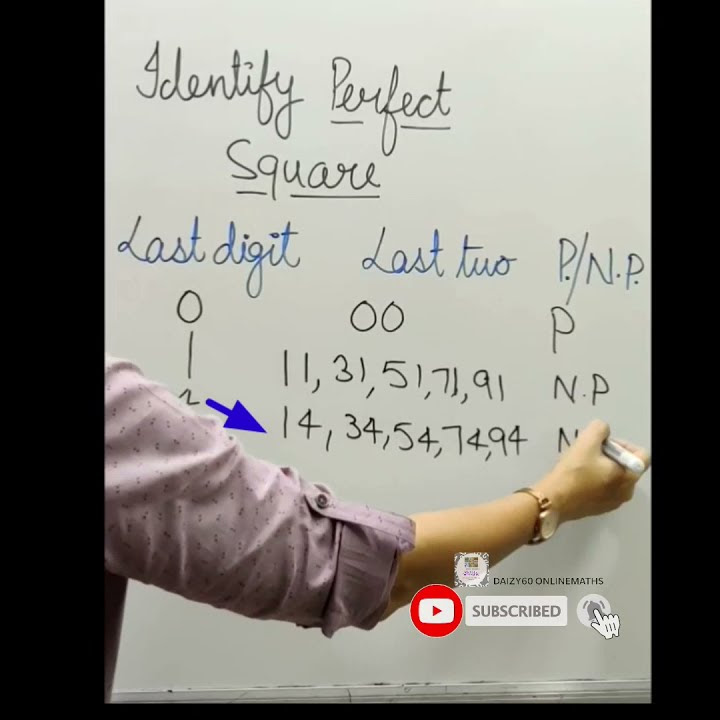 Identify Perfect
Square
Last digit Last two P./N.P.
0 00 P
1 11, 31, 51, 71, 91 N.P
14, 34, 54, 74, 94 N
DAIZY60 ONLINEMATHS
SUBSCRIBED